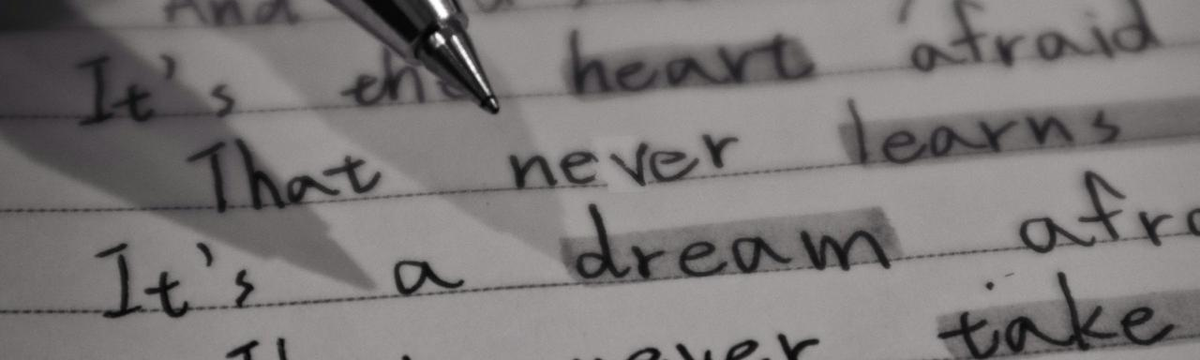 And
It's the heart afraid
That never learns
It's a dream
never take